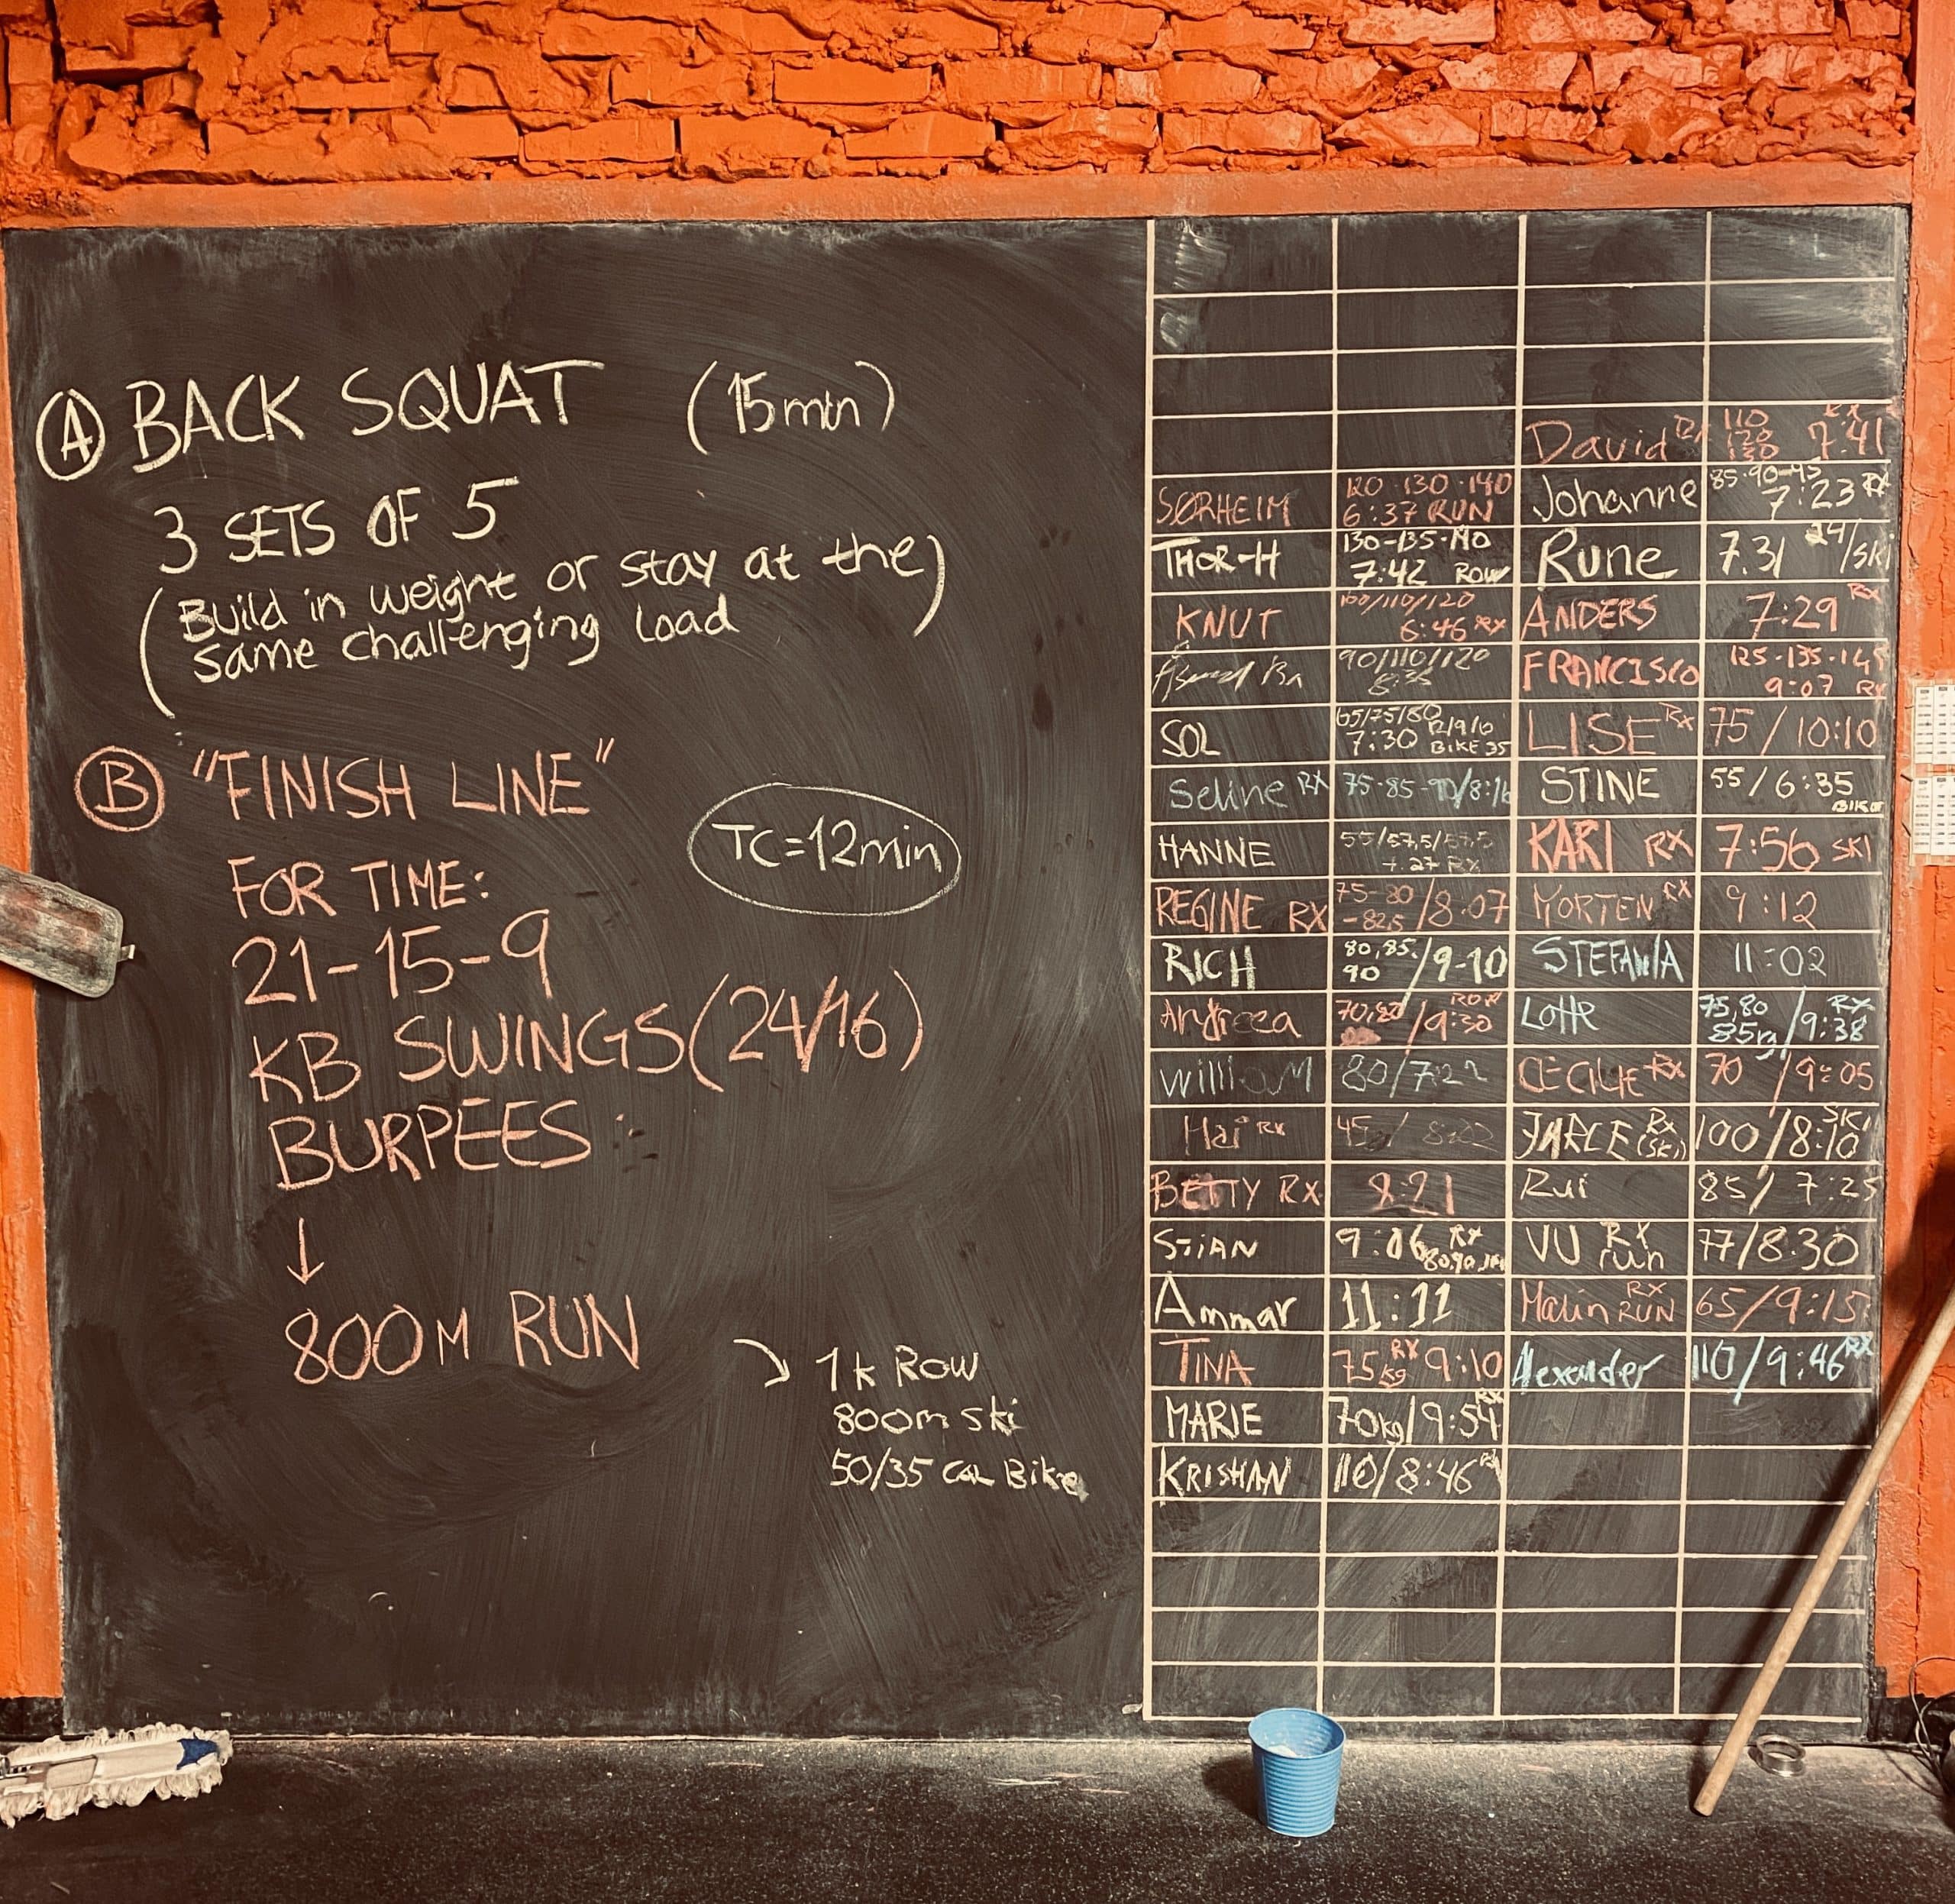 Ⓐ BACK SQUAT (15min)
3 SETS OF 5
(Build in weight or stay at the
same challenging load)
Ⓑ "FINISH LINE"
TC=12min
FOR TIME:
21-15-9
KB SWINGS (24/16)
BURPEES
↓
800M RUN
1k Row
800m Ski
50/35 Cal Bike
SØRHEIM
120-130-140
6:37 RUN
THOR-H
130-135-140
7:42 ROW
KNUT
100/110/120
6:46 RX
90/110/120
SOL
65/75/80
7:30
BIKE 35
Seline RX
75-85-90/8:16
HANNE
55/57,5/57,5
7.27 RX
REGINE RX
75-80
-82,5 /8.07
RICH
80,85,
90 /9-10
Andreea
70,80 /9:30 ROW
WilliaM
80/7:22
Hai RX
45
BETTY RX
8:21
STIAN
9:06 RX
Ammar
11:11
TINA
75kg RX 9:10
MARIE
70kg/9:54 RX
KRISHAN
110/8:46 RX
David RX
110
120
130
RX
7:41
Johanne
85-90-95
7:23 RX
Rune
7.31 24/Ski
ANDERS
7:29 RX
FRANCISCO
125-135-145
9:07 RX
LISE RX
75/10:10
STINE
55/6:35
BIKE
KARI RX
7:56 SKI
MORTEN RX
9:12
STEFANIA
11:02
Lotte
75,80 RX
/9:38
CECILIE RX
70 /9:05
JARLE RX (Ski)
100/8:10 SKI
Rui
85/7:25
VU RX run
77/8.30
Malin RX RUN
65/9:15
Alexander
110/9:46 RX